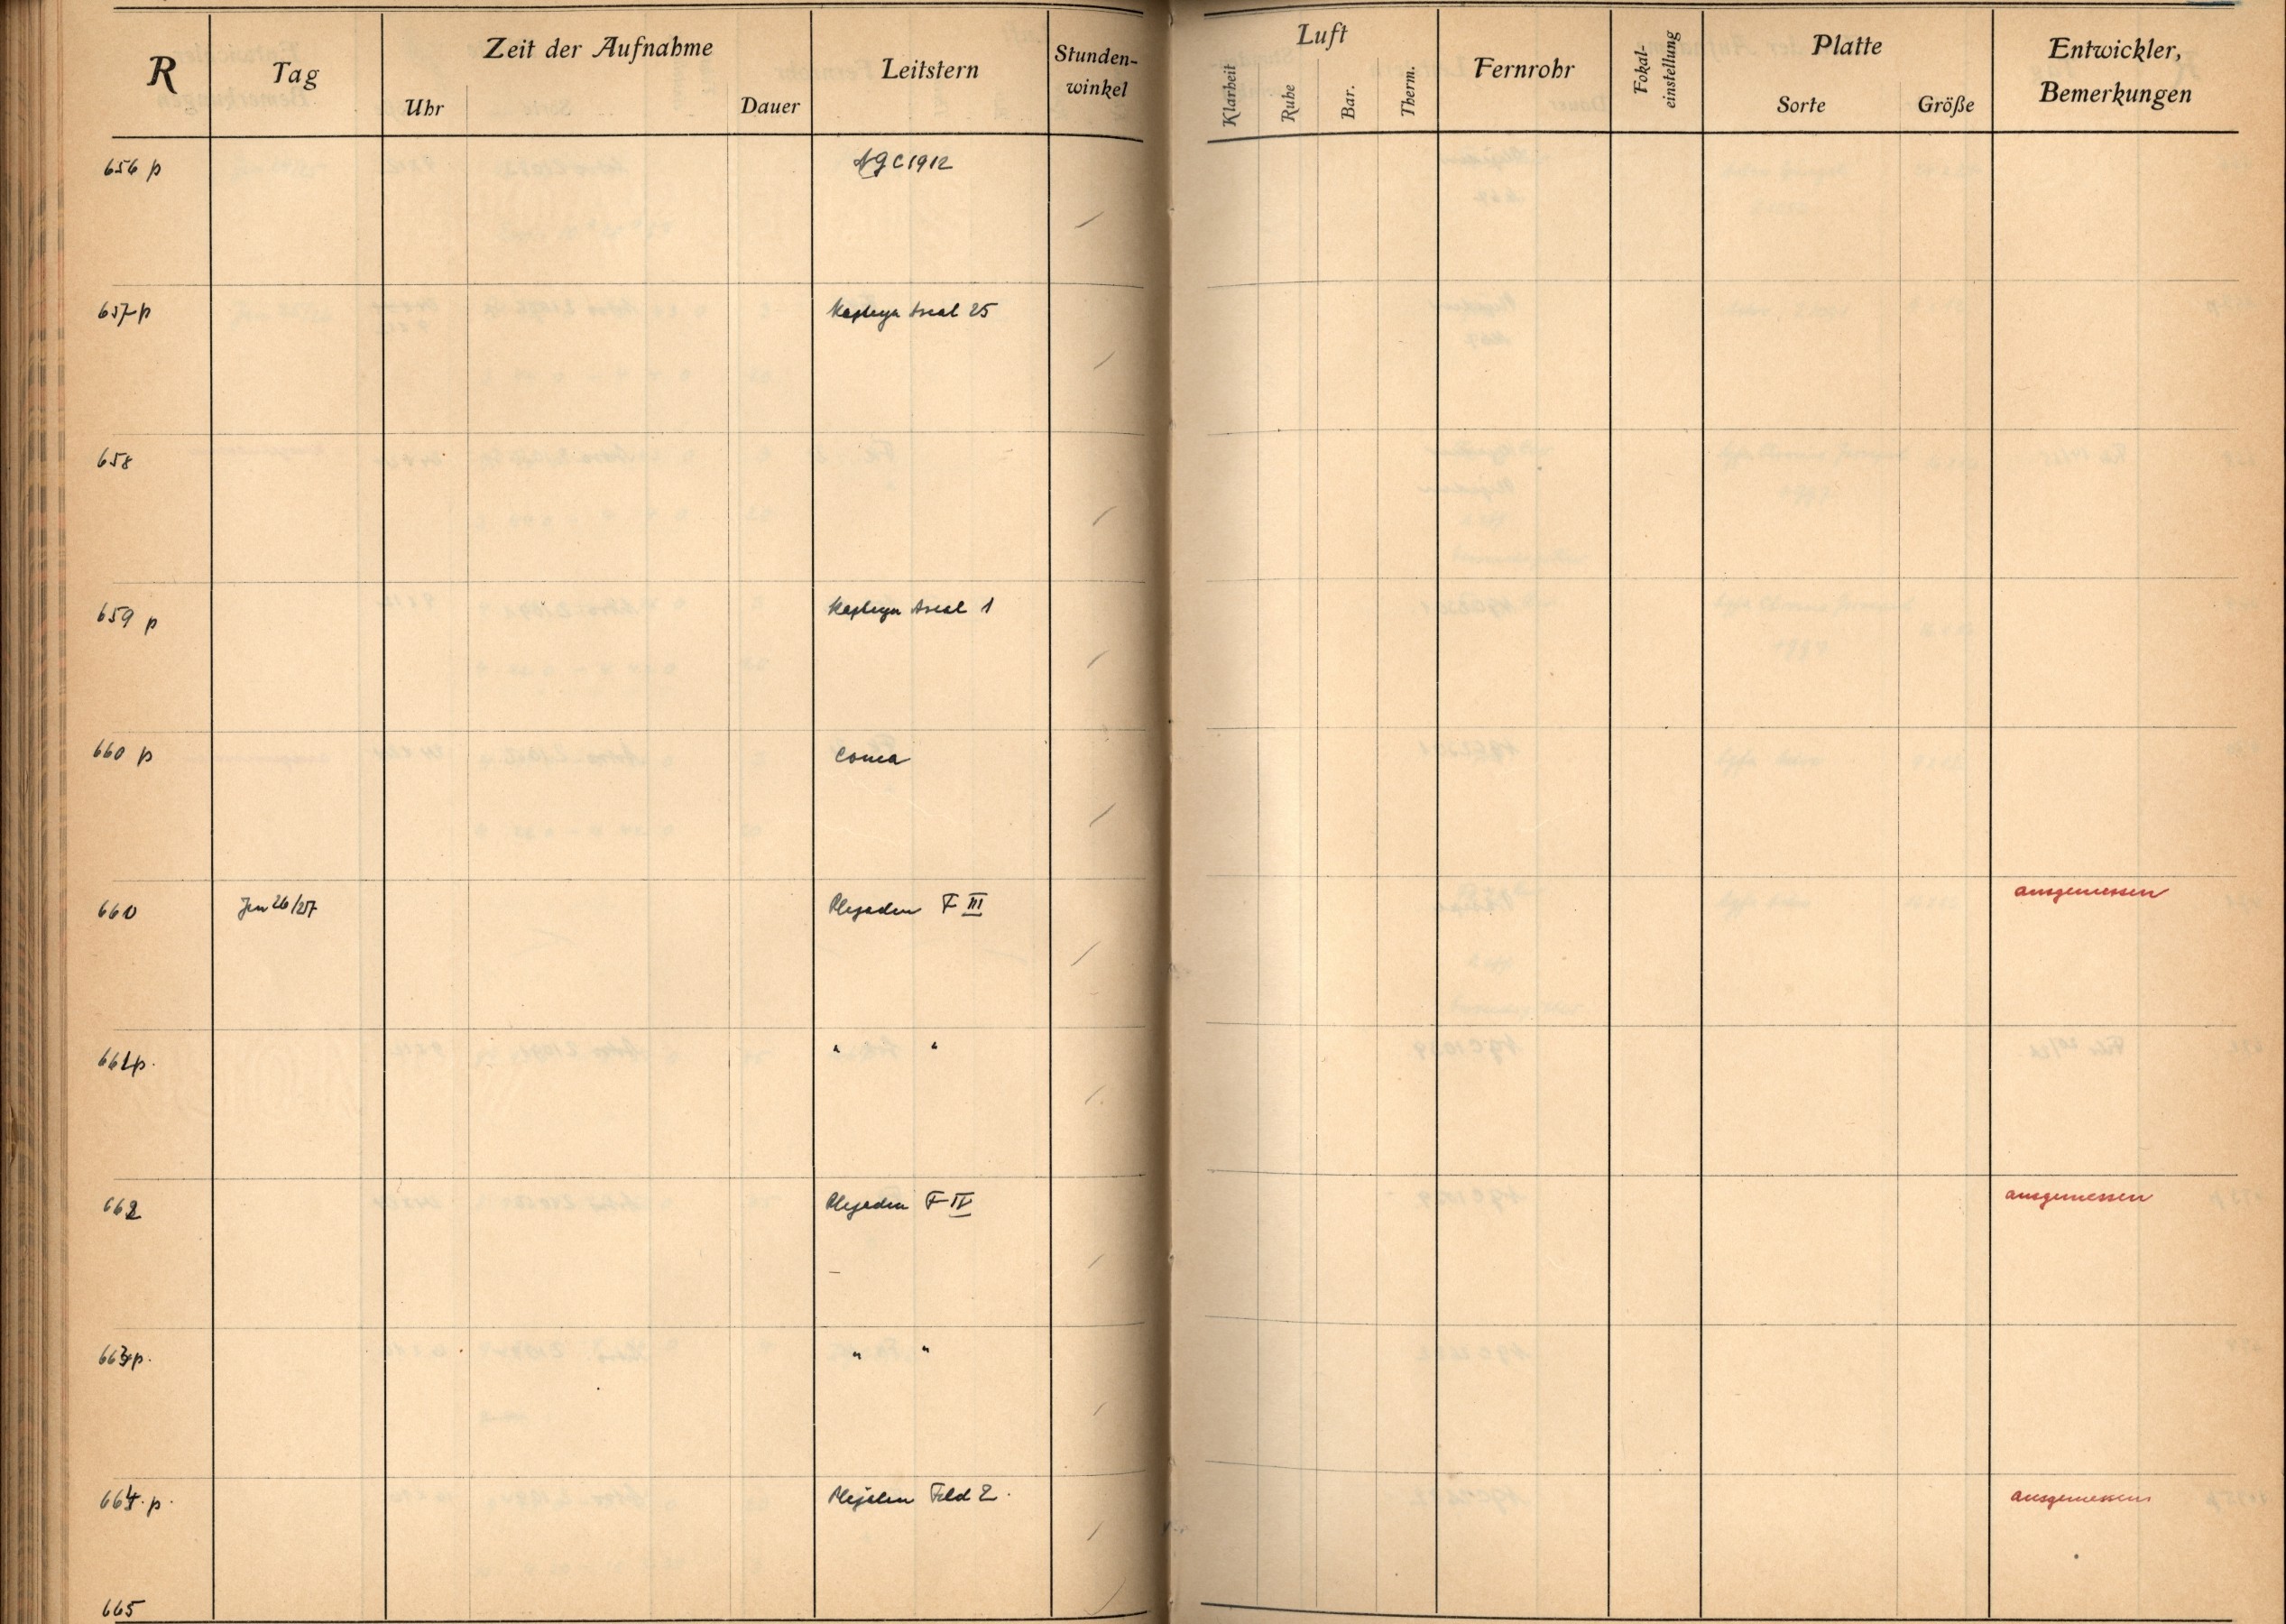 R Tag Zeit der Aufnahme Leitstern Stunden-
winkel Luft Fernrohr Fokal-
einstellung Platte Entwickler,
Bemerkungen
Uhr Dauer Klarheit Ruhe Bar. Therm. Sorte Größe
656 p NGC 1912
657 p Kapteyn Areal 25
658
659 p Kapteyn Areal 1
660 p Coma
660 Jan 26/27 Plejaden F III ausgemessen
661p. " "
662 Plejaden F IV ausgemessen
663p. " "
664. p. Plejaden Feld 2. ausgemessen
665